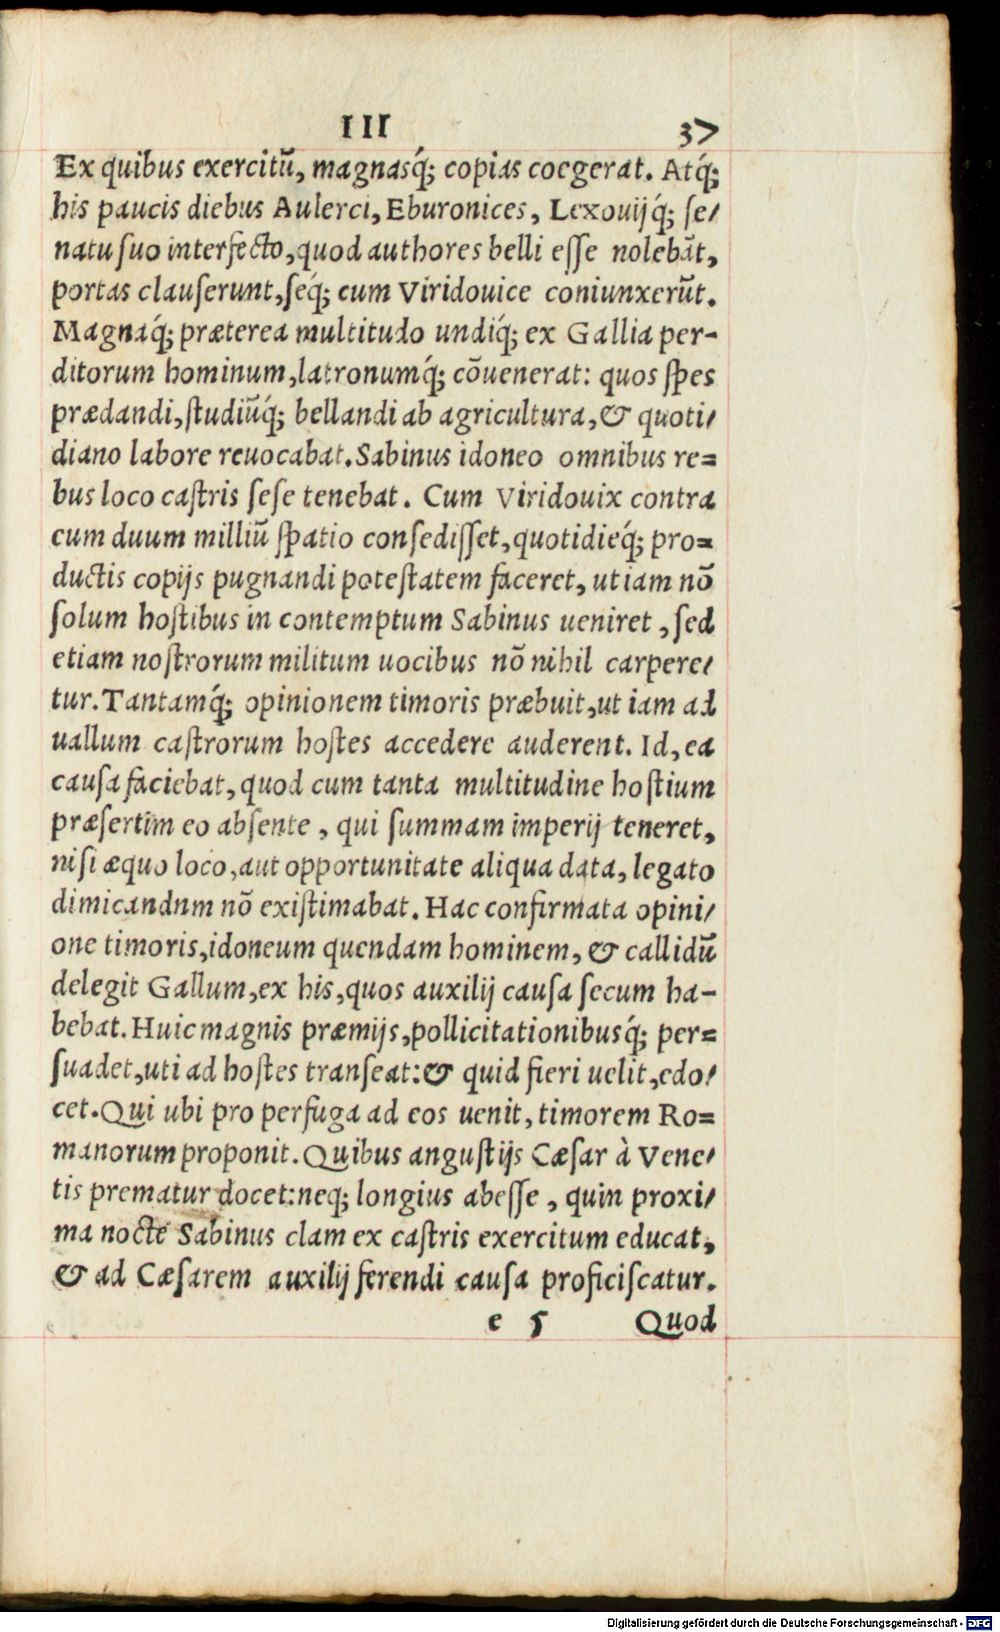 III 37
Ex quibus exercitū, magnasq́; copias coegerat. Atq́;
his paucis diebus Aulerci, Eburonices, Lexouijq́; ſe/
natu ſuo interfecto, quod authores belli eſſe nolebāt,
portas clauſerunt, ſeq́; cum Viridouice coniunxerūt.
Magnaq́; præterea multitudo undiq́; ex Gallia per-
ditorum hominum, latronumq́; cōuenerat: quos ſpes
prædandi, ſtudiūq́; bellandi ab agricultura, & quoti/
diano labore reuocabat. Sabinus idoneo omnibus re=
bus loco caſtris ſeſe tenebat. Cum Viridouix contra
cum duum milliū ſpatio conſediſſet, quotidieq́; pro=
ductis copijs pugnandi poteſtatem faceret, ut iam nō
ſolum hoſtibus in contemptum Sabinus ueniret, ſed
etiam noſtrorum militum uocibus nō nihil carpere/
tur. Tantamq́; opinionem timoris præbuit, ut iam ad
uallum caſtrorum hoſtes accedere auderent. Id, ea
cauſa faciebat, quod cum tanta multitudine hoſtium
præſertim eo abſente, qui ſummam imperij teneret,
niſi æquo loco, aut opportunitate aliqua data, legato
dimicandnm nō exiſtimabat. Hac confirmata opini/
one timoris, idoneum quendam hominem, & callidū
delegit Gallum, ex his, quos auxilij cauſa ſecum ha-
bebat. Huic magnis præmijs, pollicitationibusq́; per=
ſuadet, uti ad hoſtes tranſeat: & quid fieri uelit, edo/
cet. Qui ubi pro perfuga ad eos uenit, timorem Ro=
manorum proponit. Quibus anguſtijs Cæſar à Vene/
tis prematur docet: neq; longius abeſſe, quin proxi/
ma nocte Sabinus clam ex caſtris exercitum educat,
& ad Cæſarem auxilij ferendi cauſa proficiſcatur.
e 5 Quod
Digitalisierung gefördert durch die Deutsche Forschungsgemeinschaft - DFG